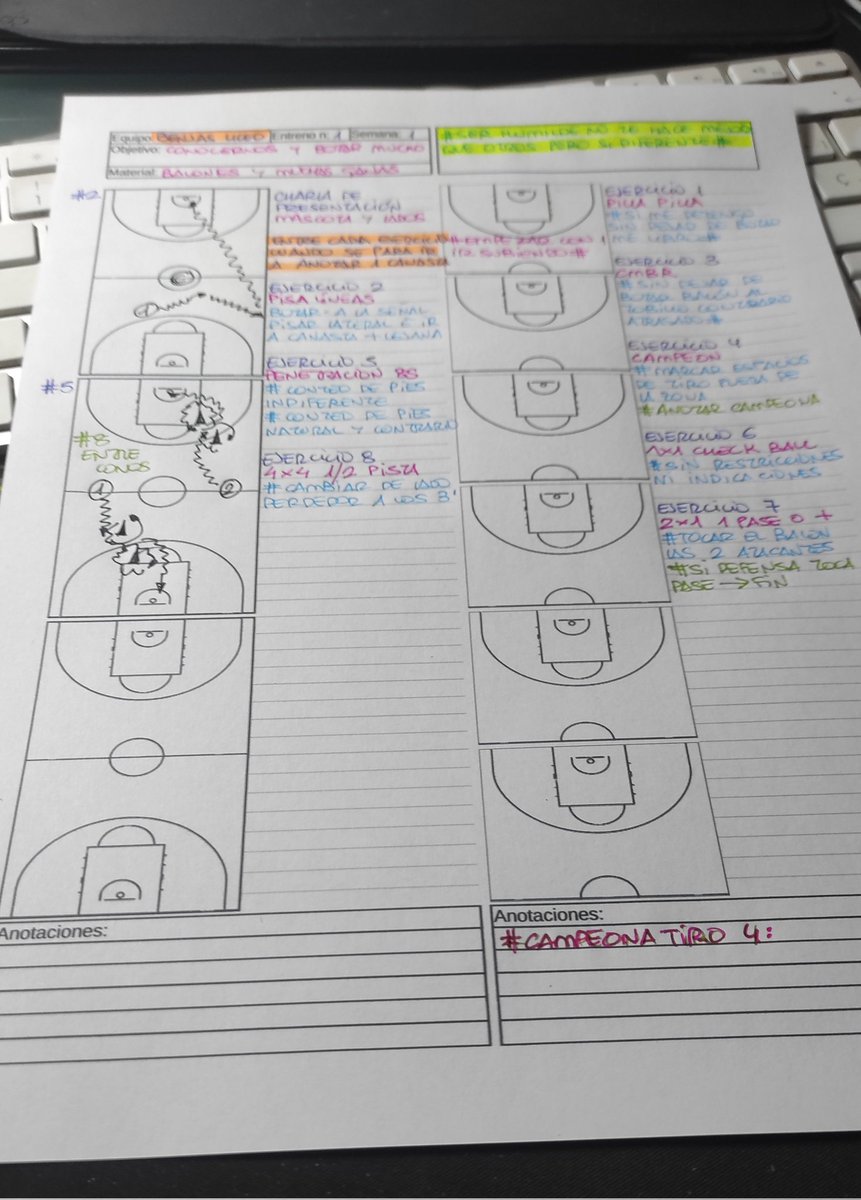 Equipo: BENJAS LICEO Entreno n: 1 Semana: 1
Objetivo: CONOCERNOS Y BOTAR MUCHO
Material: BALONES Y MUCHAS GANAS
#SER HUMILDE NO TE HACE MEJOR
QUE OTROS PERO SI DIFERENTE#
#2
CHARLA DE
PRESENTACIÓN
MASCOTA Y LAZOS
ENTRE CADA EJERCICIO
CUANDO SE PARA IR
A ANOTAR 1 CANASTA
#EMPEZAR CON 1
IR SUBIENDO#
EJERCICIO 2
PISA LINEAS
BOTAR - A LA SEÑAL
PISAR LATERAL E IR
A CANASTA + LEJANA
#5
EJERCICIO 5
PENETRACIÓN BS
# CONTEO DE PIES
INDIFERENTE
# CONTEO DE PIES
NATURAL Y CONTRARIO
#8
ENTRE
CONOS
1
2
EJERCICIO 8
4x4 1/2 PISTA
#CAMBIAR DE LADO
PERDEDOR 1 LOS 3'
EJERCICIO 1
PILLA PILLA
# SI ME DETENGO
SIN DEJAR DE BOTAR
ME LIBRO#
EJERCICIO 3
CMBR
# SIN DEJAR DE
BOTAR BALÓN AL
TOBILLO CONTRARIO
ATRASADO#
EJERCICIO 4
CAMPEON
# MARCAR ESPACIOS
DE TIRO FUERA DE
LA ZONA
# ANOTAR CAMPEONA
EJERCICIO 6
1x1 CHECK BALL
#SIN RESTRICCIONES
NI INDICACIONES
EJERCICIO 7
2x1 1 PASE O +
#TOCAR EL BALON
LAS 2 ATACANTES
#SI DEFENSA TOCA
PASE → FIN
Anotaciones:
Anotaciones:
#CAMPEONA TIRO 4: